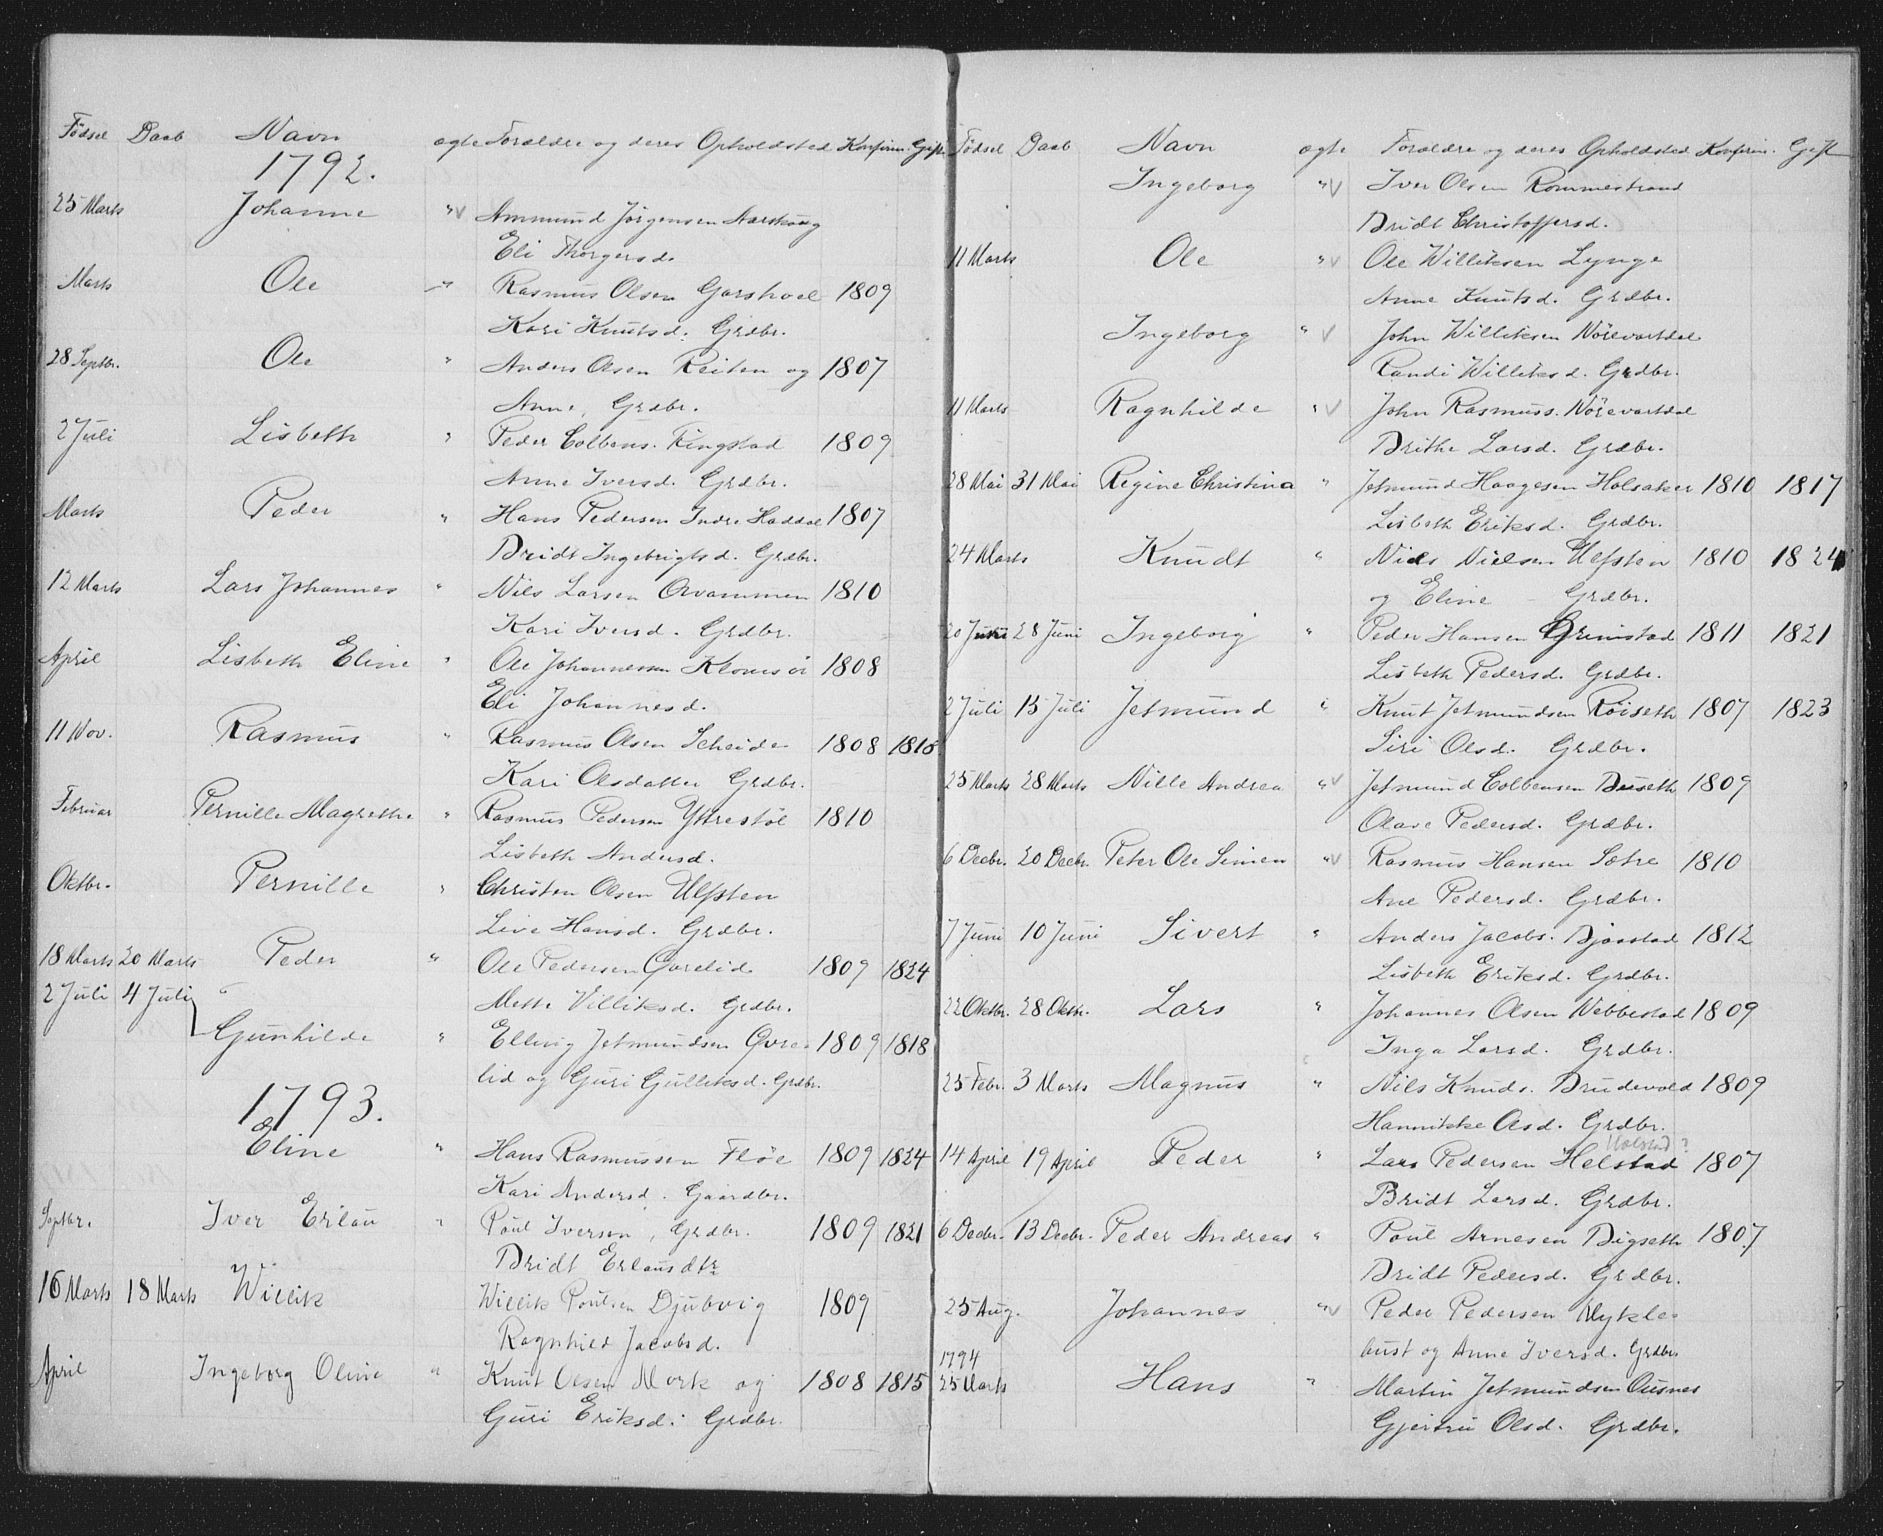 Fødsel Daab Navn ægte Forældre og deres Opholdsted Konfirm. Gift.
1792.
25 Marts Johanne "v Ammund Jørgensen Aarskoug
Eli Thorgersd.
Marts Ole " Rasmus Olsen Garshoel 1809
Kari Knutsd. Grdbr.
28 Septbr. Ole " Anders Olsen Reiten og 1807
Anne, Grdbr.
2 Juli Lisbeth " Peder Colbens. Ringstad 1809
Anne Iversd. Grdbr.
Marts Peder " Hans Pedersen Indre Haddal 1807
Bridt Ingebrigtsd. Grdbr.
12 Marts Lars Johannes " Nils Larsen Qvammen 1810
Kari Iversd. Grdbr.
April Lisbeth Eline " Ole Johannessen 1808
Eli Johannesd.
11 Nov. Rasmus " Rasmus Olsen Scheide 1808 1815
Kari Olsdatter Grdbr.
Februar Pernille Magrethe " Rasmus Pedersen Yttrestøl 1810
Lisbeth Andersd.
Oktbr. Pernille " Christen Olsen Ulfsten
Live Hansd. Grdbr.
18 Marts 20 Marts Peder " Ole Pedersen Qvrelid 1809 1824
2 Juli 4 Juli Mette Villiksd. Grdbr.
Gunhilde " Elling Jetmundsen Qvre- 1809 1818
lid og Guri Gulliksd. Grdbr.
1793.
Eline " Hans Rasmussen Fløe 1809 1824
Kari Andersd. Gaardbr.
Septbr. Iver Erlan " Poul Iversen, Grdbr. 1809 1821
Bridt Erlansdtr
16 Marts 18 Marts Willik Willik Poulsen Djubvig 1809
Ragnhild Jacobsd.
April Ingeborg Oline " Knut Olsen Mork og 1808 1815
Guri Eriksd. Grdbr.
Fødsel Daab Navn ægte Forældre og deres Opholdsted Konfirm. Gift
Ingeborg "v Iver Olsen Rommestrand
Bridt Christoffersd.
11 Marts Ole "v Ole Williksen Lynge
Anne Knutsd. Grdbr.
Ingeborg "v John Williksen Nörevartdal
Randi Williksd. Grdbr.
11 Marts Ragnhilde "v John Rasmuss. Nörevartdal
Brithe Larsd. Grdbr.
28 Mai 31 Mai Regine Christina " Jetmund Haagesen Halsaker 1810 1817
Lisbeth Eriksd. Grdbr.
24 Marts Knudt " Niels Nielsen Ulfsten 1810 1824
og Eline Grdbr.
20 Juni 28 Juni Ingeborg " Peder Hansen Grimstad 1811 1821
Lisbeth Pedersd. Grdbr.
2 Juli 15 Juli Jetmund " Knut Jetmundsen Röiseth 1807 1823
Siri Olsd. Grdbr.
25 Marts 28 Marts Nille Andrea "v Jetmund Colbensen Buseth 1809
Olave Pedersd. Grdbr.
6 Decbr. 20 Decbr. Peter Ole Simen "v Rasmus Hansen Sætre 1810
Ane Pedersd. Grdbr.
7 Juni 10 Juni Sivert " Anders Jacobs. Bjaastad 1812
Lisbeth Eriksd. Grdbr.
22 Oktbr. 28 Oktbr. Lars " Johannes Olsen Nebbestad 1809
Inga Larsd. Grdbr.
25 Febr. 3 Marts Magnus " Nils Knuds. Brudevold 1809
Hannikke Olsd. Grdbr.
Halstad?
14 April 19 April Peder " Lars Pedersen Helstad 1807
Bridt Larsd. Grdbr.
6 Decbr. 13 Decbr. Peder Andreas " Poul Arnesen Digseth 1807.
Bridt Pedersd. Grdbr.
25 Aug. Johannes "v Peder Pedersen Mykle-
bust og Anne Iversd. Grdbr.
1794
25 Marts Hans " Martin Jetmundsen Ousnes
Gjertru Olsd. Grdbr.